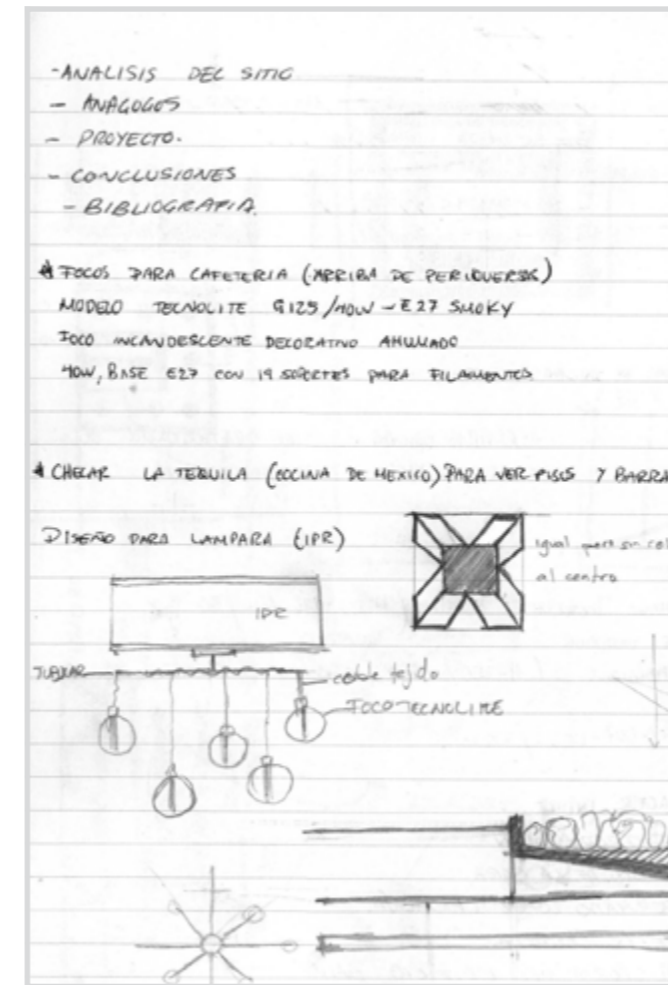 -ANALISIS DEL SITIO
- ANAGOGOS
- PROYECTO.
- CONCLUSIONES
- BIBLIOGRAFIA.
* FOCOS PARA CAFETERIA (ARRIBA DE PERIQUERAS)
MODELO TECNOLITE G125/40W - E27 SMOKY
FOCO INCANDESCENTE DECORATIVO AHUMADO
40W, BASE E27 CON 19 SOPORTES PARA FILAMENTOS
* CHECAR LA TEQUILA (COCINA DE MEXICO) PARA VER PISOS Y BARRA
DISEÑO PARA LAMPARA (IPR)
igual pero sin col
al centro
IPR
TUBULAR
cable tejido
FOCO TECNOLITE